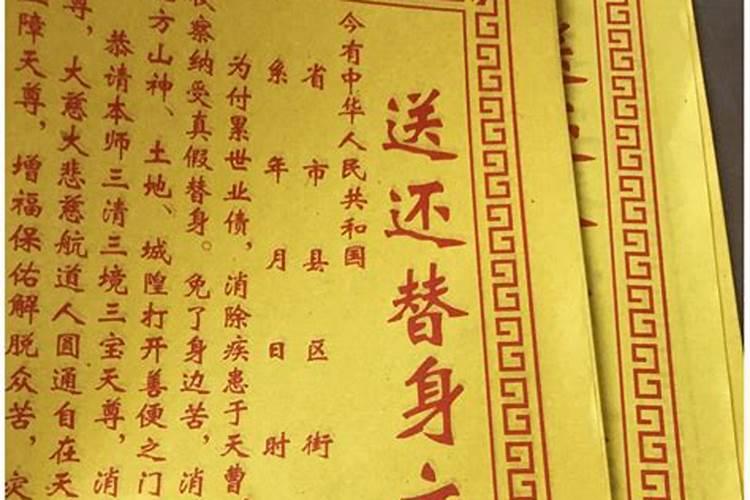 送还替身
今有中华人民共和国
省市县区街
系年月日时
为付累世业债，消除疾患于天曹
察纳受真假替身。免了身边苦，消
方山神、土地、城隍打开善便之门
恭请本师三清三境三宝天尊，消
尊，大慈大悲慈航道人圆通自在天
障天尊，增福保佑解脱众苦，灾